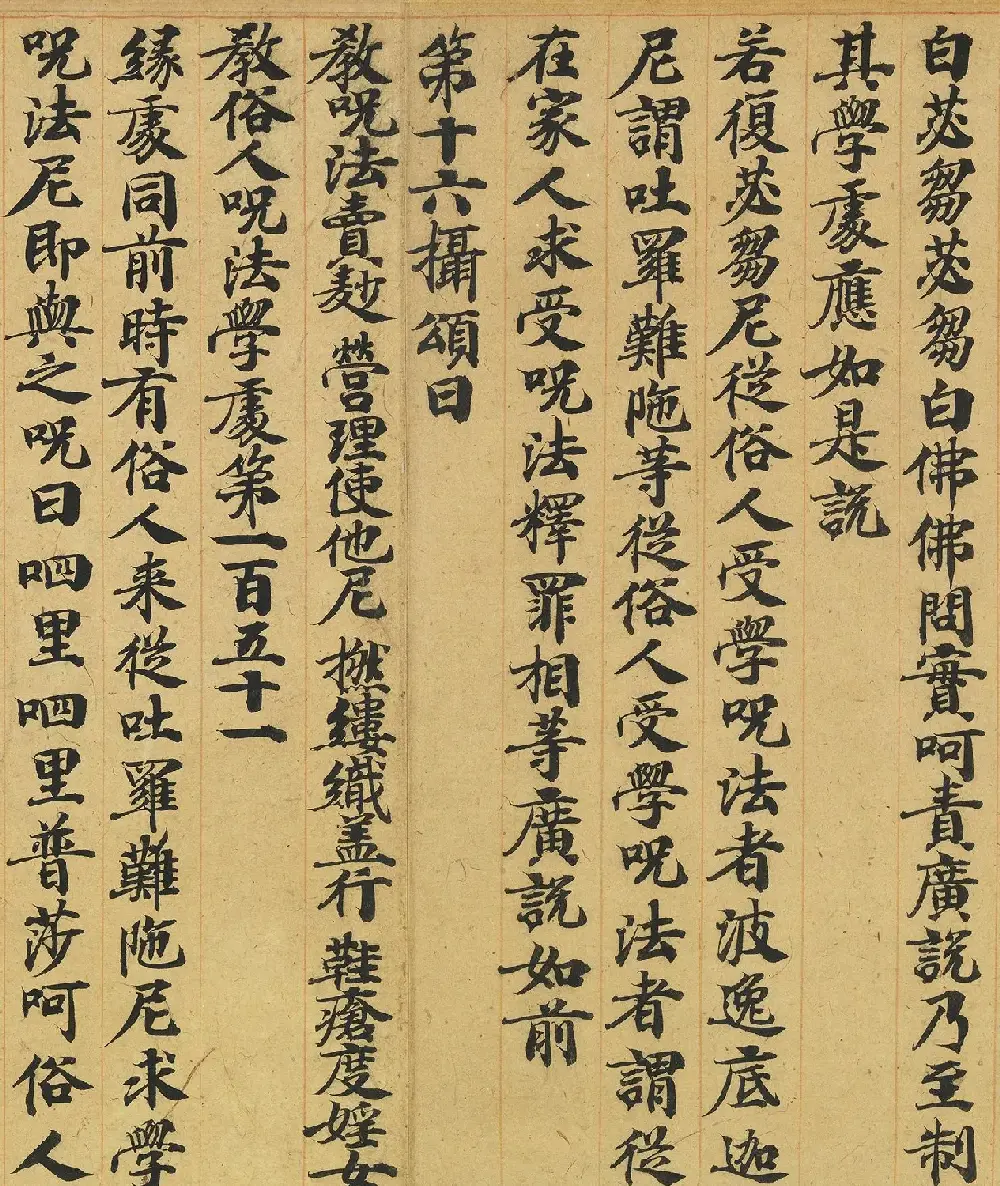 白苾芻苾芻白佛佛問實呵責廣說乃至制
其學處應如是說
若復苾芻尼從俗人受學呪法者波逸底迦
尼謂吐羅難陁等從俗人受學呪法者謂從
在家人求受呪法釋罪相等廣說如前
第十六攝頌曰
教呪法賣麨 營理使他尼 撚縷織盖行 鞋瘡度婬女
教俗人呪法學處第一百五十一
緣處同前時有俗人来從吐羅難陁尼求學
呪法尼即與之呪曰呬里呬里普莎呵俗人